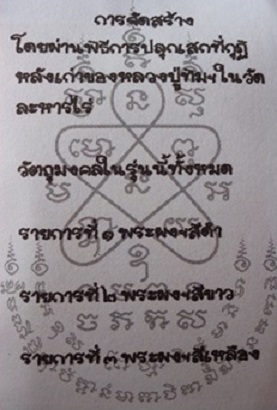 การจัดสร้าง
โดยผ่านพิธีการปลุกเสกที่กุฏิ
หลังเก่าของหลวงปู่ทิมฯในวัด
ละหารไร่
วัตถุมงคลในรุ่นนี้ทั้งหมด
รายการที่ ๑ พระผงฯสีดำ
รายการที่ ๒ พระผงฯสีขาว
รายการที่ ๓ พระผงฯสีเหลือง